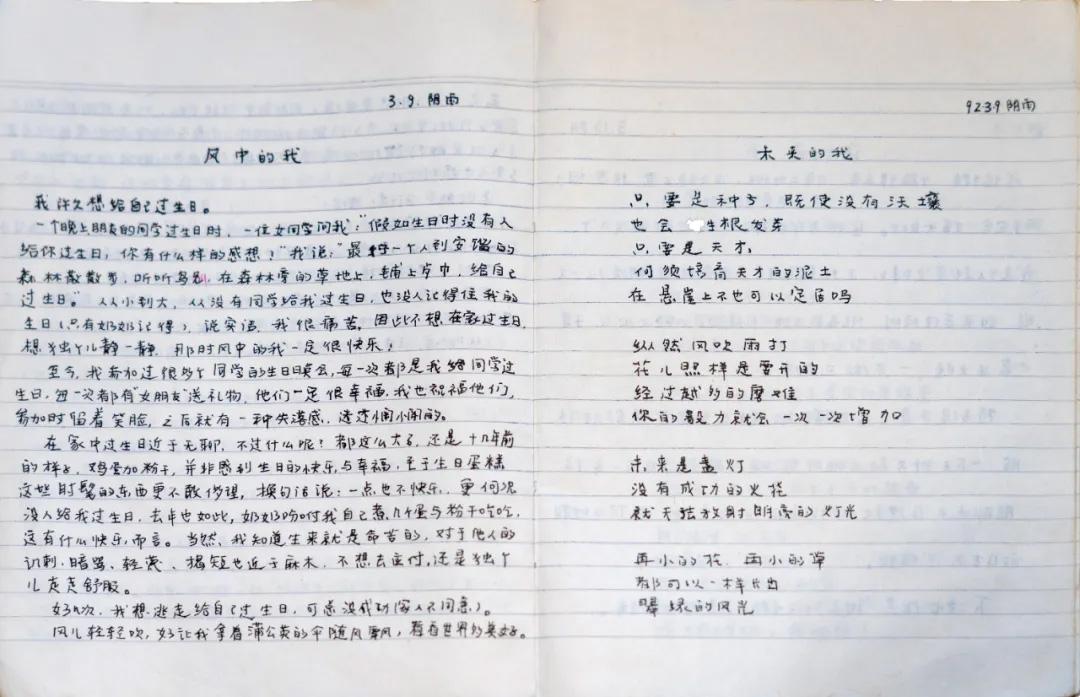 3.9.阴雨
风中的我
我许久想给自己过生日。
一个晚上朋友的同学过生日时,一位女同学问我:"假如生日时没有人
给你过生日,你有什么样的感想?"我说:"最想一个人到安瑞的
森林散散步,听听鸟儿,在森林旁的草地上,铺上草巾,给自己
过生日。"从小到大,从没有同学给我过生日,也没人记得住我的
生日(只有奶奶记得),说实话,我很痛苦,因此不想在家过生日,
想独个儿静一静,那时风中的我一定很快乐!
至今,我参加过很多个同学的生日晚会,每一次都是我给同学过
生日,每一次都有"女朋友"送礼物,他们一定很幸福,我也祝福他们,
参加时留着笑脸,之后就有一种失落感,迷迷惘惘的。
在家中过生日近于无聊,不过什么呢?都这么大了,还是十几年前
的样子,鸡蛋加粉干,并非感到生日的快乐与幸福,至于生日蛋糕
这些时髦的东西更不敢侈望,换句话说:一点也不快乐,更何况
没人给我过生日,去年也如此,奶奶吩咐我自己煮几个蛋与粉干吃吃,
这有什么快乐而言。当然,我知道生来就是命苦的,对于他人的
讥刺、暗骂、轻蔑、揭短也近于麻木,不想去应付,还是独个
儿走走舒服。
好几次,我想逃走给自己过生日,可总没成功(家人不同意)。
风儿轻轻吹,好让我拿着蒲公英的伞随风飘,看看世界的美好。
92.3.9阴雨
未来的我
只要是种子,既使没有沃壤
也会 生根发芽
只要是天才
何须培育天才的泥土
在悬崖上不也可以定居吗
纵然风吹雨打
花儿照样是要开的
经过越多的磨难
你的毅力就会一次一次增加
未来是盏灯
没有成功的火花
就无法放射明亮的灯光
再小的花,再小的草
都可以一样长出
嫩绿的风光